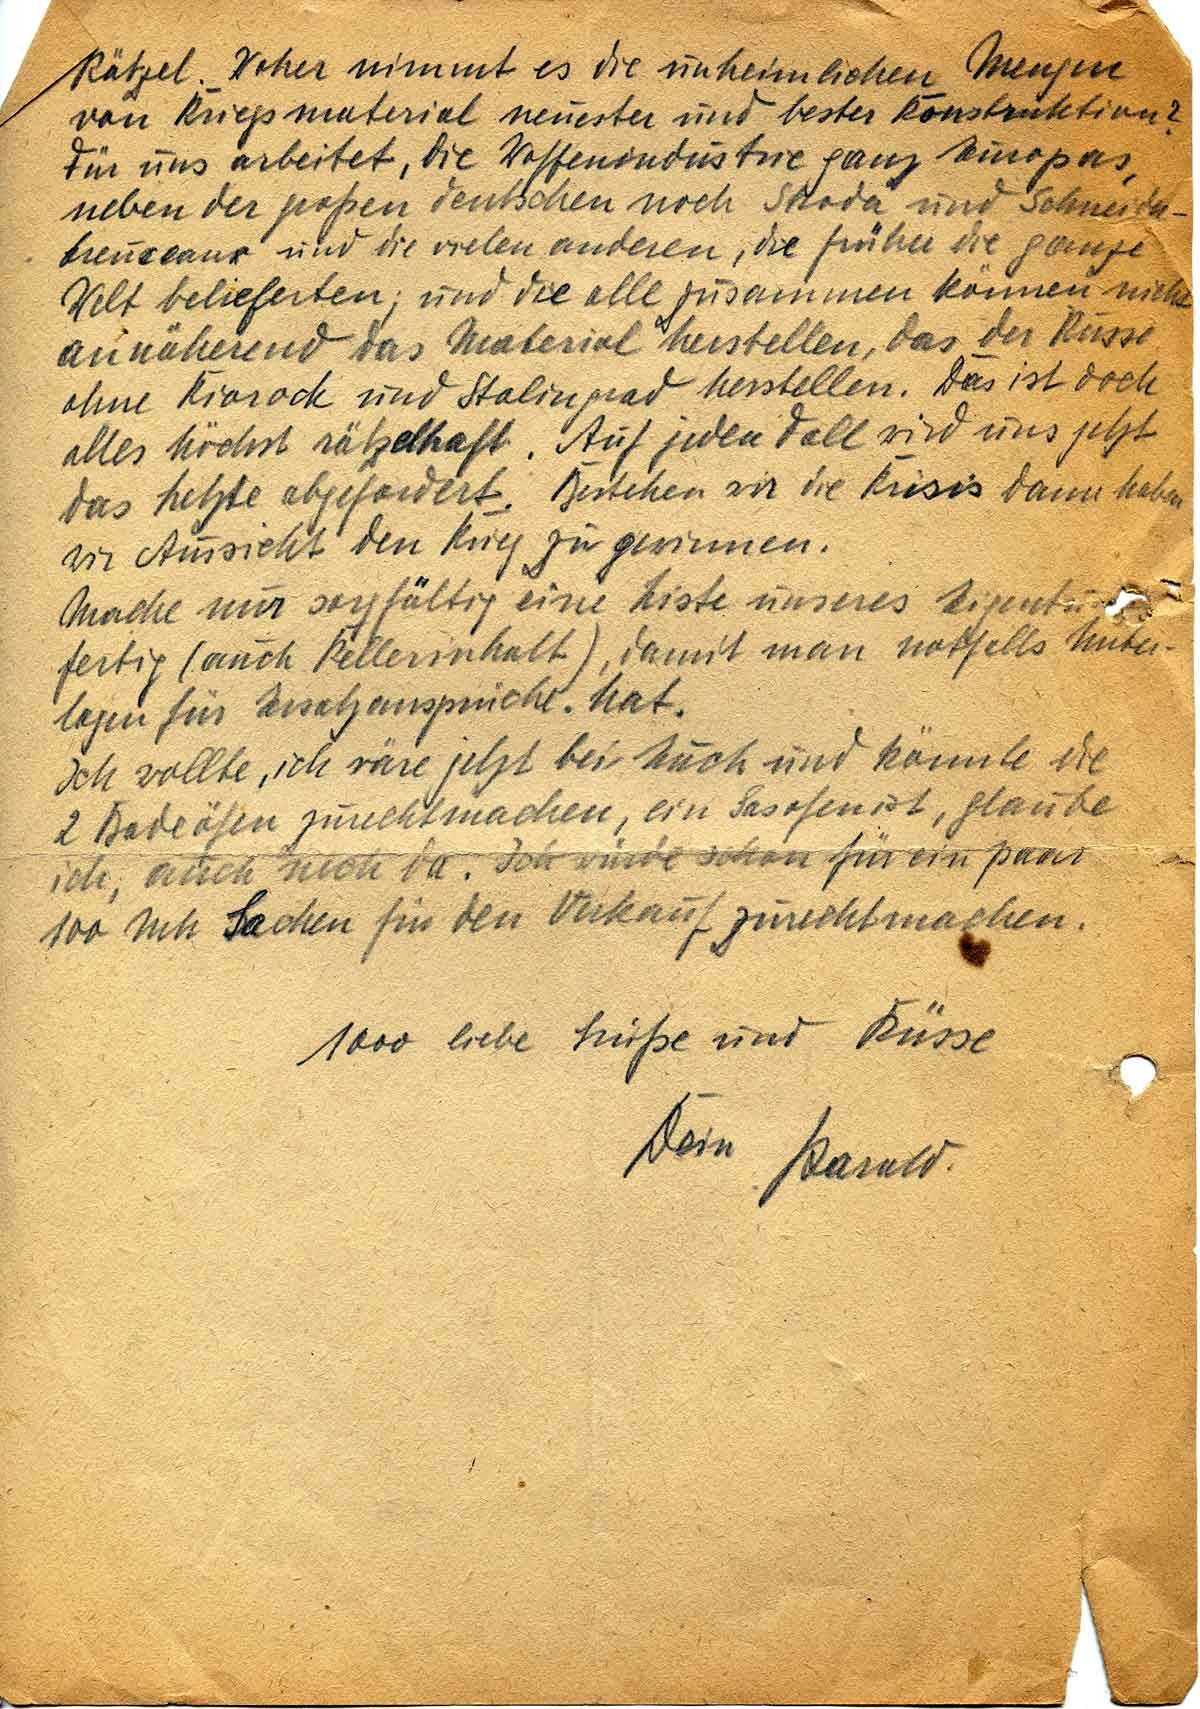 Rätzel. Woher nimmt es die unheimlichen Mengen
von Kriegsmaterial neuester und bester Konstruktion?
Für uns arbeitet, die Waffenindustrie ganz Europas,
neben der großen deutschen noch Skoda und Schneider-
Creuceaux und die vielen anderen, die früher die ganze
Welt belieferten; und die alle zusammen können nicht
annäherend das Material herstellen, das der Russe
ohne und Stalingrad herstellen. Das ist doch
alles höchst rätzelhaft. Auf jeden Fall wird uns jetzt
das Letzte abgefordert. Bestehen wir die Krisis dann haben
wir Aussicht den Krieg zu gewinnen.
Mache nur sorgfältig eine Liste unseres Eigentums
fertig (auch Kellerinhalt), damit man notfalls Unter-
lagen für Ersatzansprüche. hat.
Ich wollte, ich wäre jetzt bei Euch und könnte die
2 Badeöfen zurechtmachen, ein Gasofen ist, glaube
ich, auch noch da. Ich würde schon für ein paar
100 Mk Sachen für den Verkauf zurechtmachen.
1000 liebe Grüße und Küsse
Dein Harald.